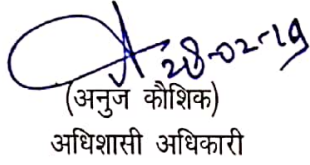 28-02-19
(अनुज कौशिक)
अधिशासी अधिकारी